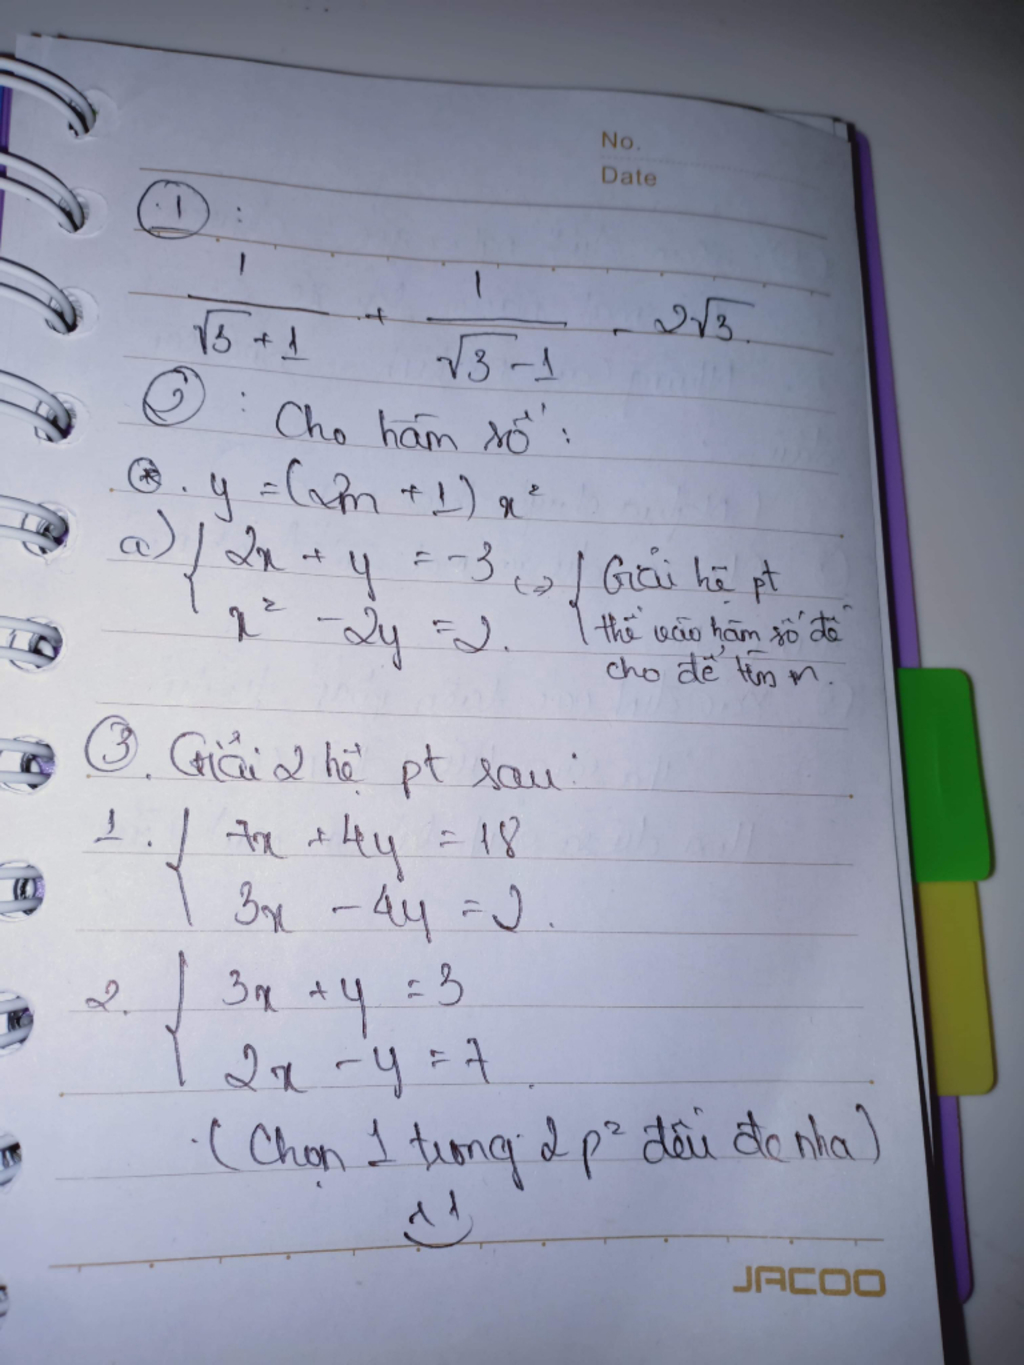 No.
Date
1 :
1/(√3 + 1) + 1/(√3 - 1) - 2√3.
2 : Cho hàm số :
* . y = (2m + 1) x²
a) { 2x + y = -3 <=> { Giải hệ pt
x² - 2y = 2. thế vào hàm số đề
cho để tìm m.
3 . Giải 2 hệ pt sau:
1. { 7x + 4y = 18
3x - 4y = 2.
2. { 3x + y = 3
2x - y = 7.
(Chọn 1 trong 2 p² đều đc nha)
JACOO